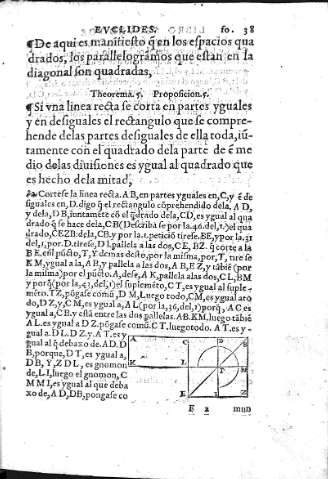 EVCLIDES. fo. 38
¶De aqui es manifiesto q̃ en los espacios qua
drados, los parallelogramos que estan en la
diagonal son quadradas,
Theorema. 5. Proposicion. 5.
¶Si vna linea recta se corta en partes yguales
y en desiguales el rectangulo que se compre-
hende delas partes desiguales de ella toda, iũ-
tamente con el quadrado dela parte de ẽ me
dio de las diuisiones es ygual al quadrado que
es hecho dela mitad,
Cortese la linea recta. A B, en partes yguales en, C, y ẽ de
siguales en, D. digo q̃ el rectãgulo cõprehendido dela, A D,
y dela, D B, iuntamẽte cõ el q̃drado dela, CD, es ygual al qua
drado q̃ se haze dela, CB (Describa se por la. 46. del, 1.) el qua
drado, CEZB. dela, CB, y por la. 1. peticiõ tirese. BE, y por la. 31
del, 1, por. D. tirese, D I, pllela a las dos, CE, BZ. q̃ corte a la
B E. en el pũcto, T, y demas desto, por la misma, por, T, tire se
K M, ygual a la, A B, y pllela a las dos, A B, E Z, y tãbiẽ (por
la misma) por el pũcto. A, dese, A K, pllela alas dos, C L, B M
y porq̃ (por la, 43, del, 1) el suplemẽto, C T, es ygual al suple-
mẽto. TZ, põgase comũ, D M, Luego todo, CM, es ygual a to
do, D Z, y, C M, es ygual a, A L (por la, 36, del, 1) porq̃, A C es
ygual a, CB. y està entre las dos pallelas. AB. KM. luego tãbiẽ
A L. es ygual a D Z. põgase comũ. C T. luego todo. A T. es y-
gual a. D L. D Z. y. A T. es y
gual al q̃ debaxo de. AD. D
B, porque, D T, es ygual a,
D B, Y, Z D L, es gnomon
de, L I, luego el gnomon, C
M M I, es ygual al que deba
xo de, A D, DB, pongase co
A C D B
K L T M
E I Z
F 2 mun